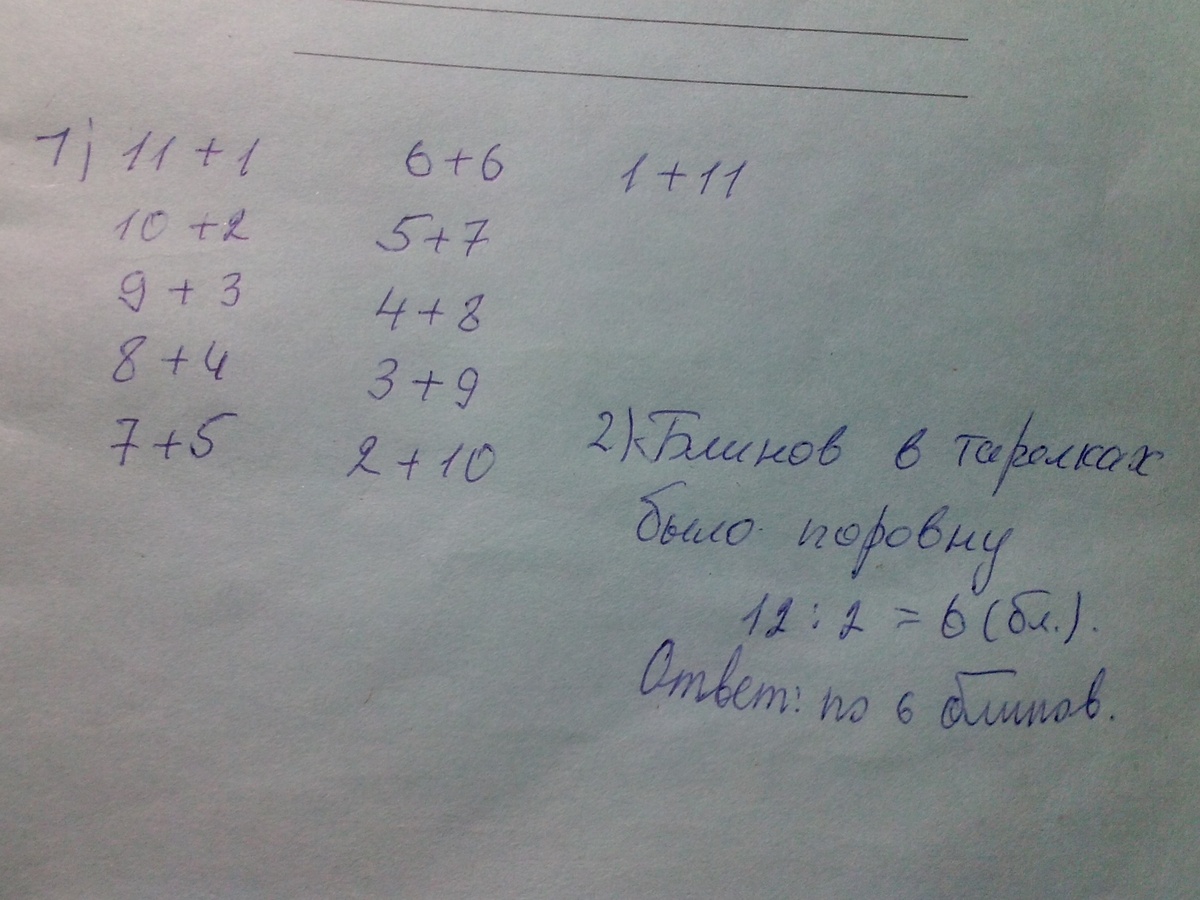 1) 11 + 1
10 + 2
9 + 3
8 + 4
7 + 5
6 + 6
5 + 7
4 + 8
3 + 9
2 + 10
1 + 11
2) Блинов в тарелках
было поровну
12 : 2 = 6 (бл.).
Ответ: по 6 блинов.